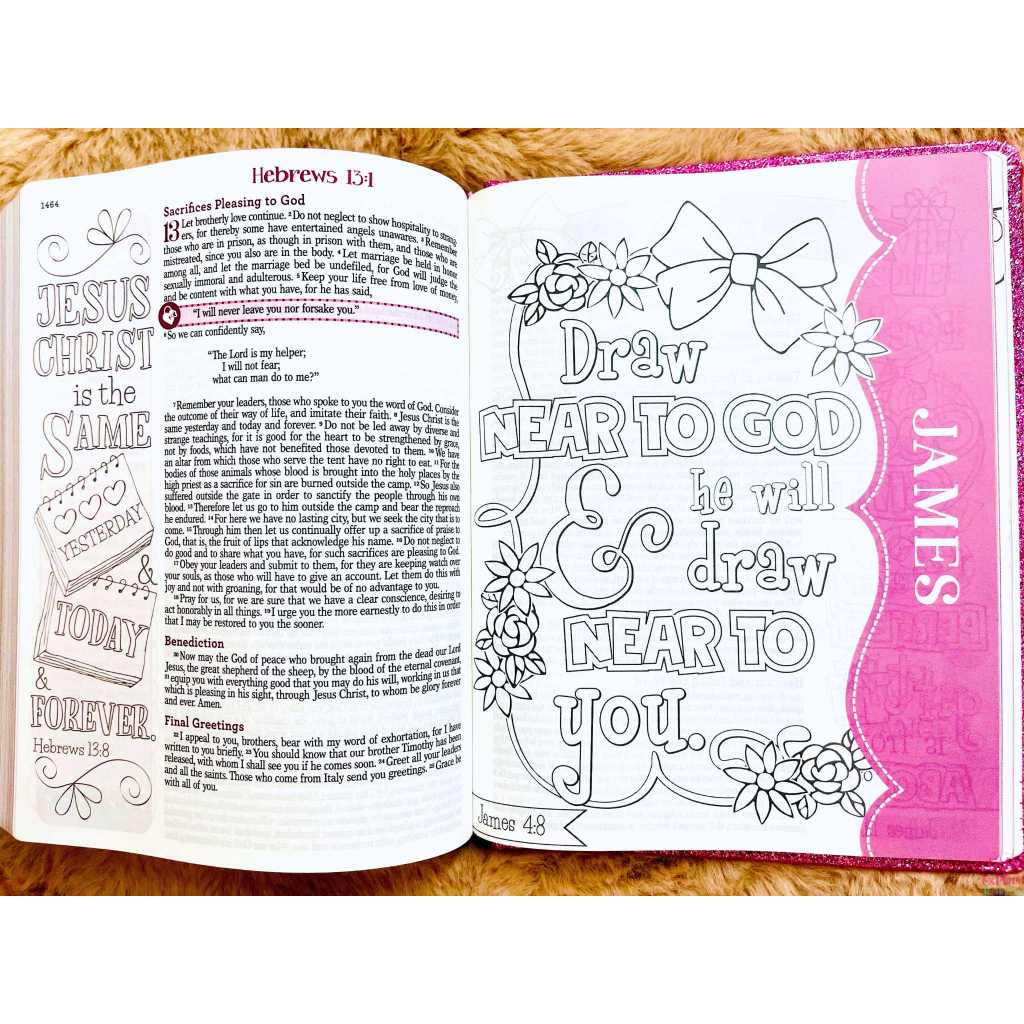 1464
Hebrews 13:1
JESUS
CHRIST
is the
SAME
YESTERDAY
&
TODAY
&
FOREVER.
Hebrews 13:8
Sacrifices Pleasing to God
13 Let brotherly love continue. 2 Do not neglect to show hospitality to strang-
ers, for thereby some have entertained angels unawares. 3 Remember
those who are in prison, as though in prison with them, and those who are
mistreated, since you also are in the body. 4 Let marriage be held in honor
among all, and let the marriage bed be undefiled, for God will judge the
sexually immoral and adulterous. 5 Keep your life free from love of money,
and be content with what you have, for he has said,
“I will never leave you nor forsake you.”
6 So we can confidently say,
“The Lord is my helper;
I will not fear;
what can man do to me?”
7 Remember your leaders, those who spoke to you the word of God. Consider
the outcome of their way of life, and imitate their faith. 8 Jesus Christ is the
same yesterday and today and forever. 9 Do not be led away by diverse and
strange teachings, for it is good for the heart to be strengthened by grace,
not by foods, which have not benefited those devoted to them. 10 We have
an altar from which those who serve the tent have no right to eat. 11 For the
bodies of those animals whose blood is brought into the holy places by the
high priest as a sacrifice for sin are burned outside the camp. 12 So Jesus also
suffered outside the gate in order to sanctify the people through his own
blood. 13 Therefore let us go to him outside the camp and bear the reproach
he endured. 14 For here we have no lasting city, but we seek the city that is to
come. 15 Through him then let us continually offer up a sacrifice of praise to
God, that is, the fruit of lips that acknowledge his name. 16 Do not neglect to
do good and to share what you have, for such sacrifices are pleasing to God.
17 Obey your leaders and submit to them, for they are keeping watch over
your souls, as those who will have to give an account. Let them do this with
joy and not with groaning, for that would be of no advantage to you.
18 Pray for us, for we are sure that we have a clear conscience, desiring to
act honorably in all things. 19 I urge you the more earnestly to do this in order
that I may be restored to you the sooner.
Benediction
20 Now may the God of peace who brought again from the dead our Lord
Jesus, the great shepherd of the sheep, by the blood of the eternal covenant,
21 equip you with everything good that you may do his will, working in us that
which is pleasing in his sight, through Jesus Christ, to whom be glory forever
and ever. Amen.
Final Greetings
22 I appeal to you, brothers, bear with my word of exhortation, for I have
written to you briefly. 23 You should know that our brother Timothy has been
released, with whom I shall see you if he comes soon. 24 Greet all your leaders
and all the saints. Those who come from Italy send you greetings. 25 Grace be
with all of you.
Draw
NEAR TO GOD
& he will
draw
NEAR TO
you.
James 4:8
JAMES